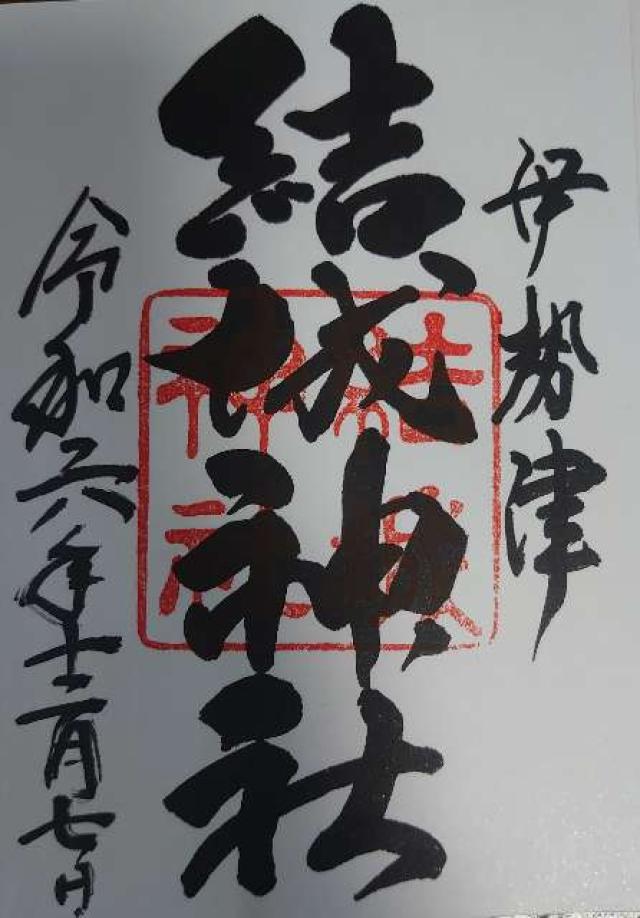 伊勢津
結城神社
結城
神社
令和六年十二月七日